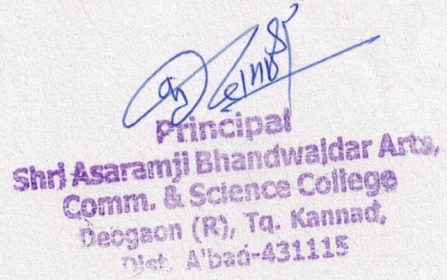 Principal
Shri Asaramji Bhandwaldar Arts,
Comm. & Science College
Deogaon (R), Tq. Kannad,
Dist. A'bad-431115